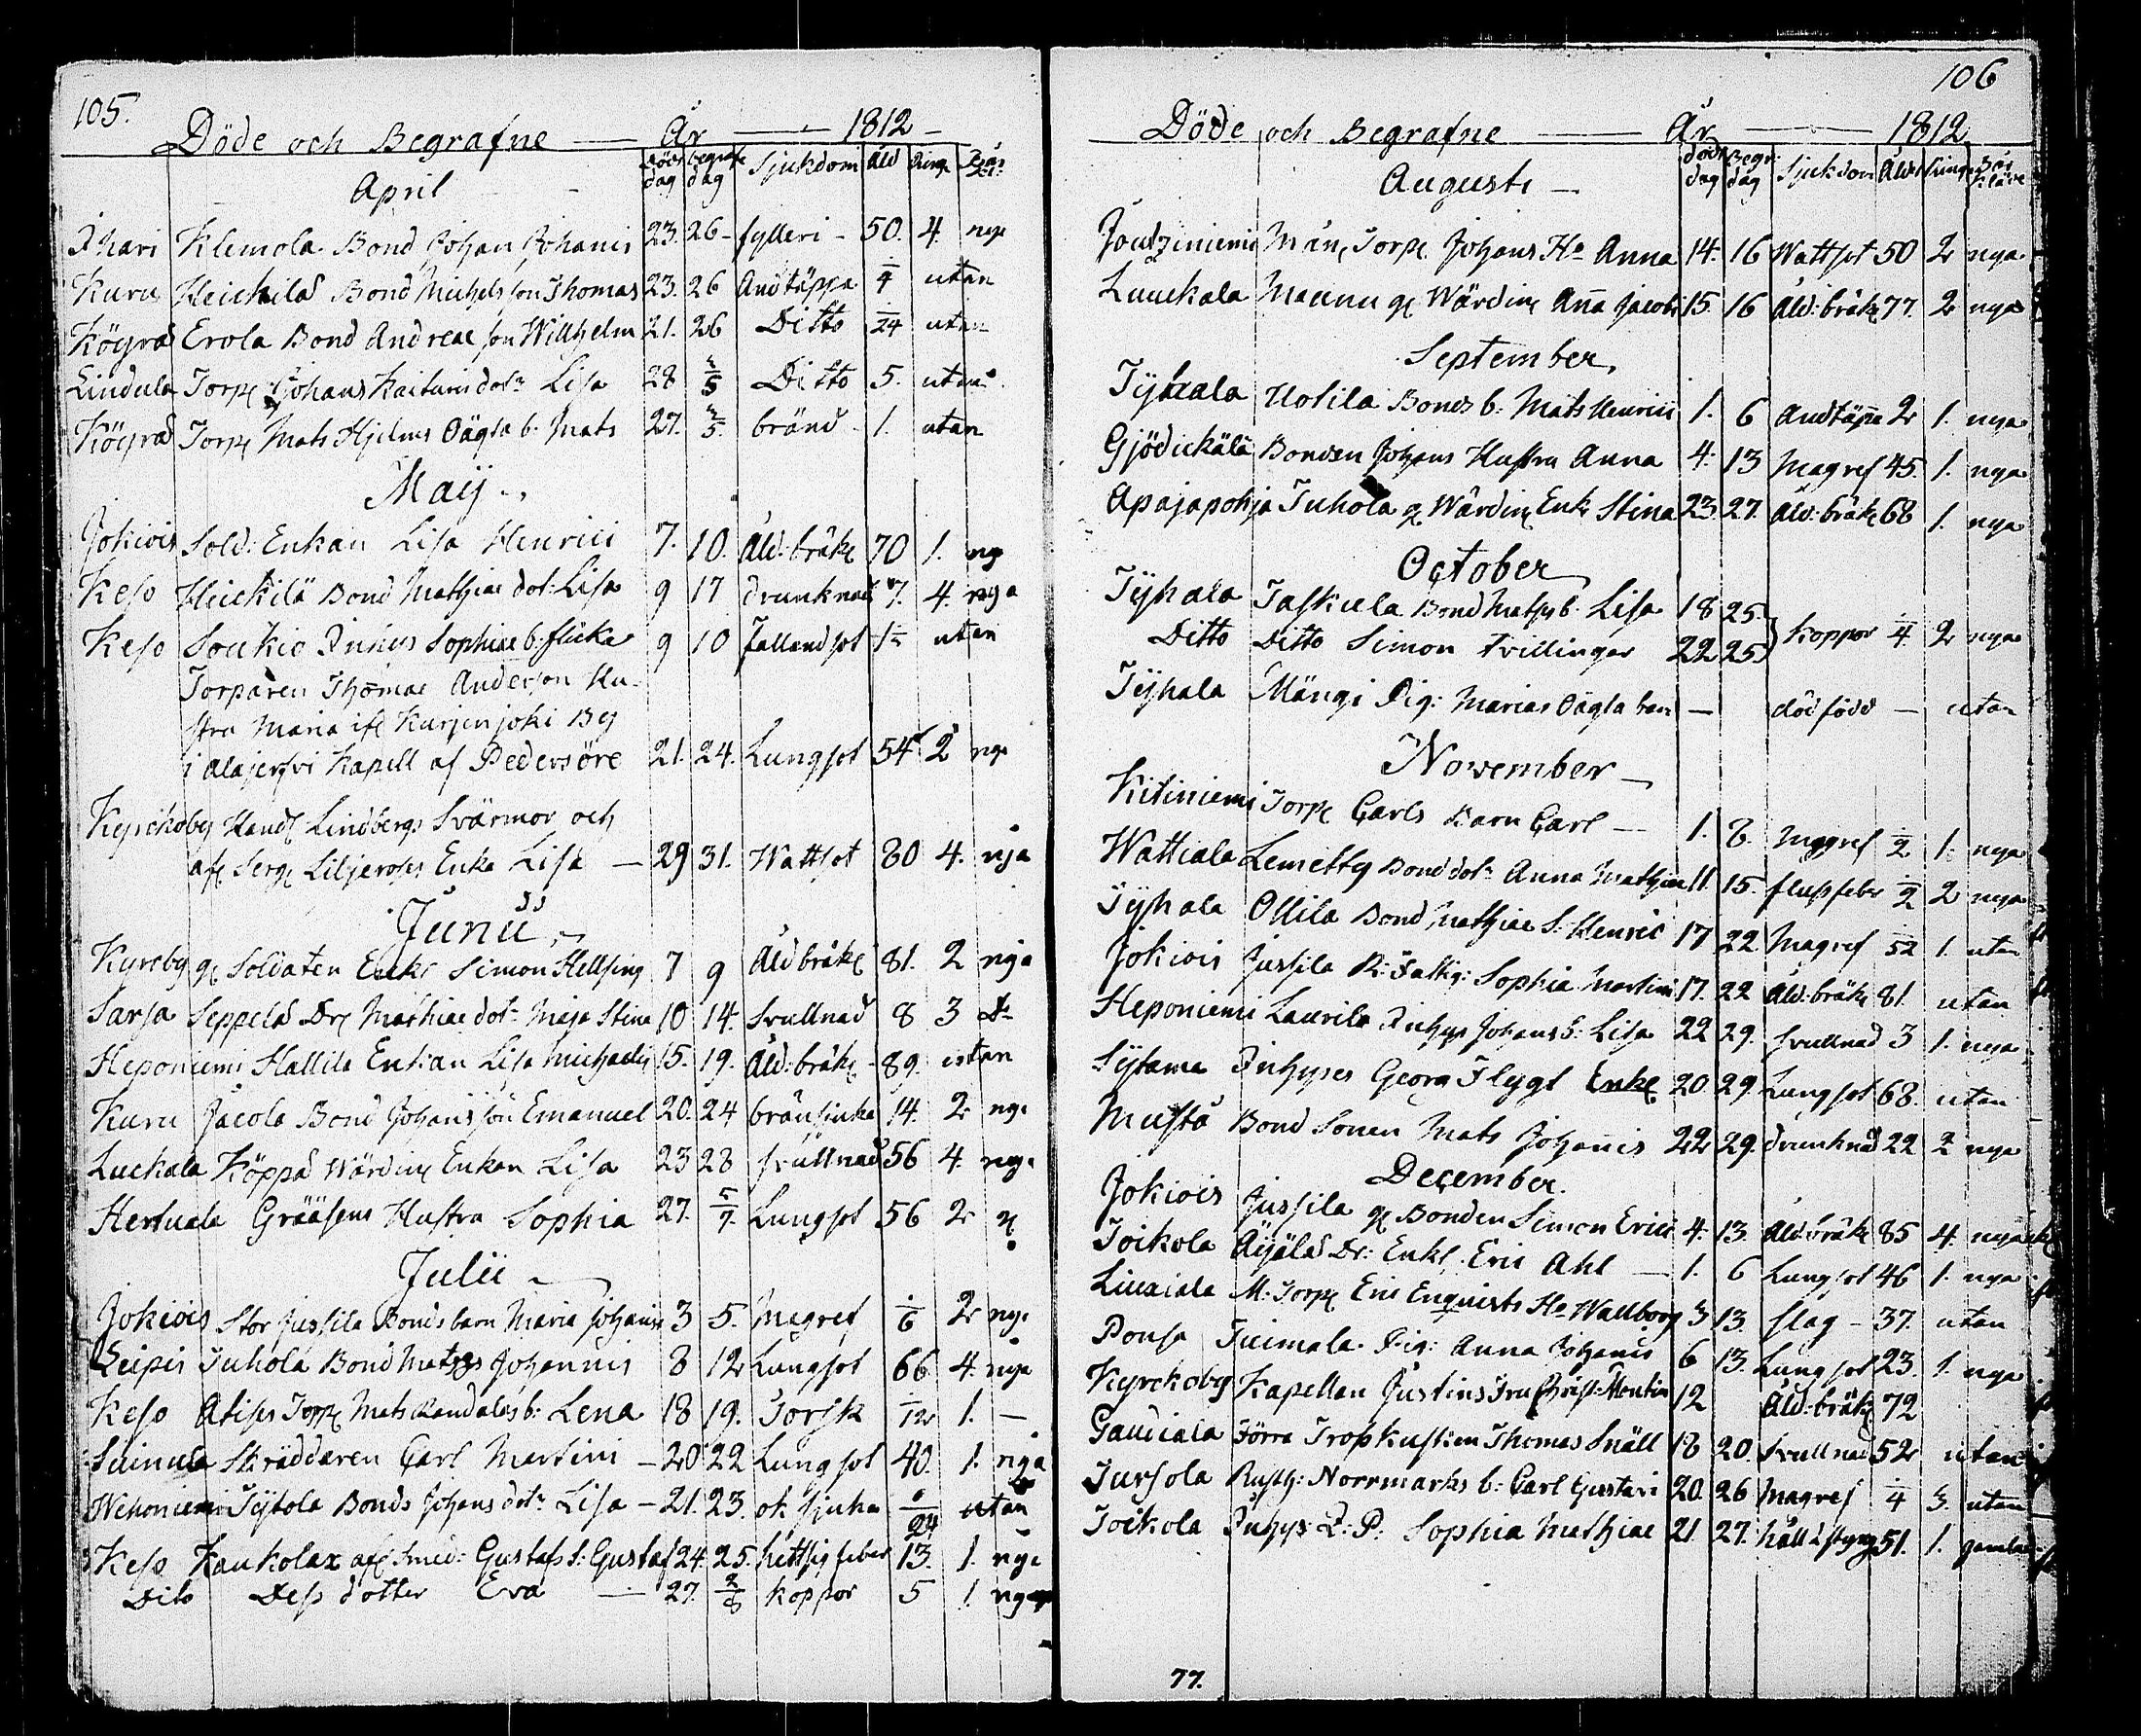 105.
Döde och Begrafne — År — 1812 –
April
död dag begrafn dag Sjukdom Åld Ring Bår
Ihari Klemola Bond Johan Johanis 23. 26 – fylleri – 50. 4. nya
Kuru Heickilas Bond Michels son Thomas 23. 26 Andtäppa 1/4 utan
Köyrä Erola Bond Andreae son Willhelm 21. 26 Ditto 1/24 utan
Lindula Torp: Johans dotr Lisa 28 3/5 Ditto 5. utan
Köyrä Torp: Mats Hjelms Oägta b: Mats 27. 3/5. bränd – 1. utan
Maij
Jokiois Sold: Enkan Lisa Henrici 7. 10. Åld:bräk: 70 1. ny
Keso Heickilä Bond Mathiae dot: Lisa 9 17 drunknad 7. 4. nya
Keso Soukio Inhys Sophiae b: flicka 9 10 fallandsot utan
Torparen Thomae Anderson Hu-
stru Maria ifr Kurjenjoki By
i Alajerfvi Kapell af Pedersöre 21. 24. Lungsot 54 2 nya
Kyrckoby Handl Lindbergs Svärmor och
afl Serg: Liljeroses Enka Lisa — 29 31. Wattsot 80 4. nja
Junii
Kyrcby gl Soldaten Enkl Simon Hellsing 7 9 Åldbräk: 81. 2 nija
Sarsa Seppelas Dr: Mathiae dotr Maja Stina 10 14. Svullnad 8 3 do
Heponiemi Hallila Enkan Lisa Michaelis 15. 19. Åld:bräk: – 89. utan
Kuru Jacola Bond Johans son Emanuel 20. 24 bränsjuka 14. 2 nya
Luckala Köppä Wärdin: Enkan Lisa 23 28 svullnad 56 4. nya
Hertuala Grääsens Hustru Sophia 27. 5/7. Lungsot 56 2 g
Julii
Jokiois Stor Jussila Bonds barn Maria Johanis 3 5. Magref 1/6 2 nya
Leipis Juhola Bond Mats Johannis 8 12 Lungsot 66 4. nya
Keso Atises Torp: Mats Randalas b: Lena 18 19. Torsk 1/12 1. —
Suinula Skräddaren Carl Martini — 20 22 Lungsot 40. 1. nya
Wehoniemi Sÿtola Bonds Johans dotr Lisa – 21. 23. ok sjuka 24 utan
Keso Kaukolax afl Smed: Gustafs S: Gustaf 24. 25. hettsig feber 13. 1. nya
Dito Dess dotter Eva — 27. 2/8 Koppor 5 1. nya
106
Döde och Begrafne — År — 1812.
Augusti —
döds dag Begr: dag Sjukdom Åld: Ring Bår kläde
Joutziniemi Män: Torp: Johans Ha Anna 14. 16 Wattsot 50 2 nya
Luuckala Maunu gl Wärdin: Ana Jacobi 15. 16 Åld:bräk: 77. 2 nya
September
Tyhala Uotila Bonds b: Mats Henrici 1. 6 Andtäppa 2 1. nya
Gjödickälä Bonden Johans Hustru Anna 4. 13 Magref 45. 1. nya
Apajapohja Juhola gl Wärdin: Enk: Stina 23. 27. Åld:bräk: 68 1. nya
October
Tyhala Taskula Bond Mats b. Lisa 18 25.
Ditto Ditto Simon tvillingar 22 25 Koppor 1/4. 2 nya
Tyhala Mängi Pig: Marias Oägta barn — dödfödd — utan
November —
Kitiniemi Torp: Carls Barn Carl — 1. 8. Magref 1/2 1. nya
Wattiala Lemetty Bond dotr Anna Mathiae 11. 15. fluss febr 1/2 2 nya
Tyhala Ollila Bond Mathiae S: Henric 17 22. Magref 1/52 1. utan
Jokiois Jussila R: Fattig: Sophia Martini 17. 22 Åld:bräk: 81. utan
Heponiemi Laurila Inhys Johans S: Lisa 22 29. Svullnad 3 1. nya
Sytama Inhyses Georg Flygt Enkl 20 29. Lungsot 68. utan
Musta Bond Sonen Mats Johanis 22 29. drunknad 22 2 nya
December.
Jokiois Jussila gl Bonden Simon Erici 4. 13. Åld:bräk: 85 4. nya
Toikola Äijälas Dr: Enkl: Eric Ahl — 1. 6 Lungsot 46 1. nya
Liuxiala M: Torp: Eric Enquists Ha Wallborg 3 13. slag – 37. utan
Ponsa Tuimala Pig: Anna Johanis 6 13. Lungsot 23. 1. nya
Kyrckoby Kapellan Justins Fru Christ: Montin 12 Åld:bräk: 72
Gaudiala Förra Tropkusken Thomas Snäll 18 20. Svullnad 52 utan
Tursola Rusth: Norrmarks b: Carl Gustavi 20. 26 Magref 1/4 3. utan
Toikola Inhys: L: P: Sophia Mathiae 21 27. håll & styng 51. 1. gamla
77.